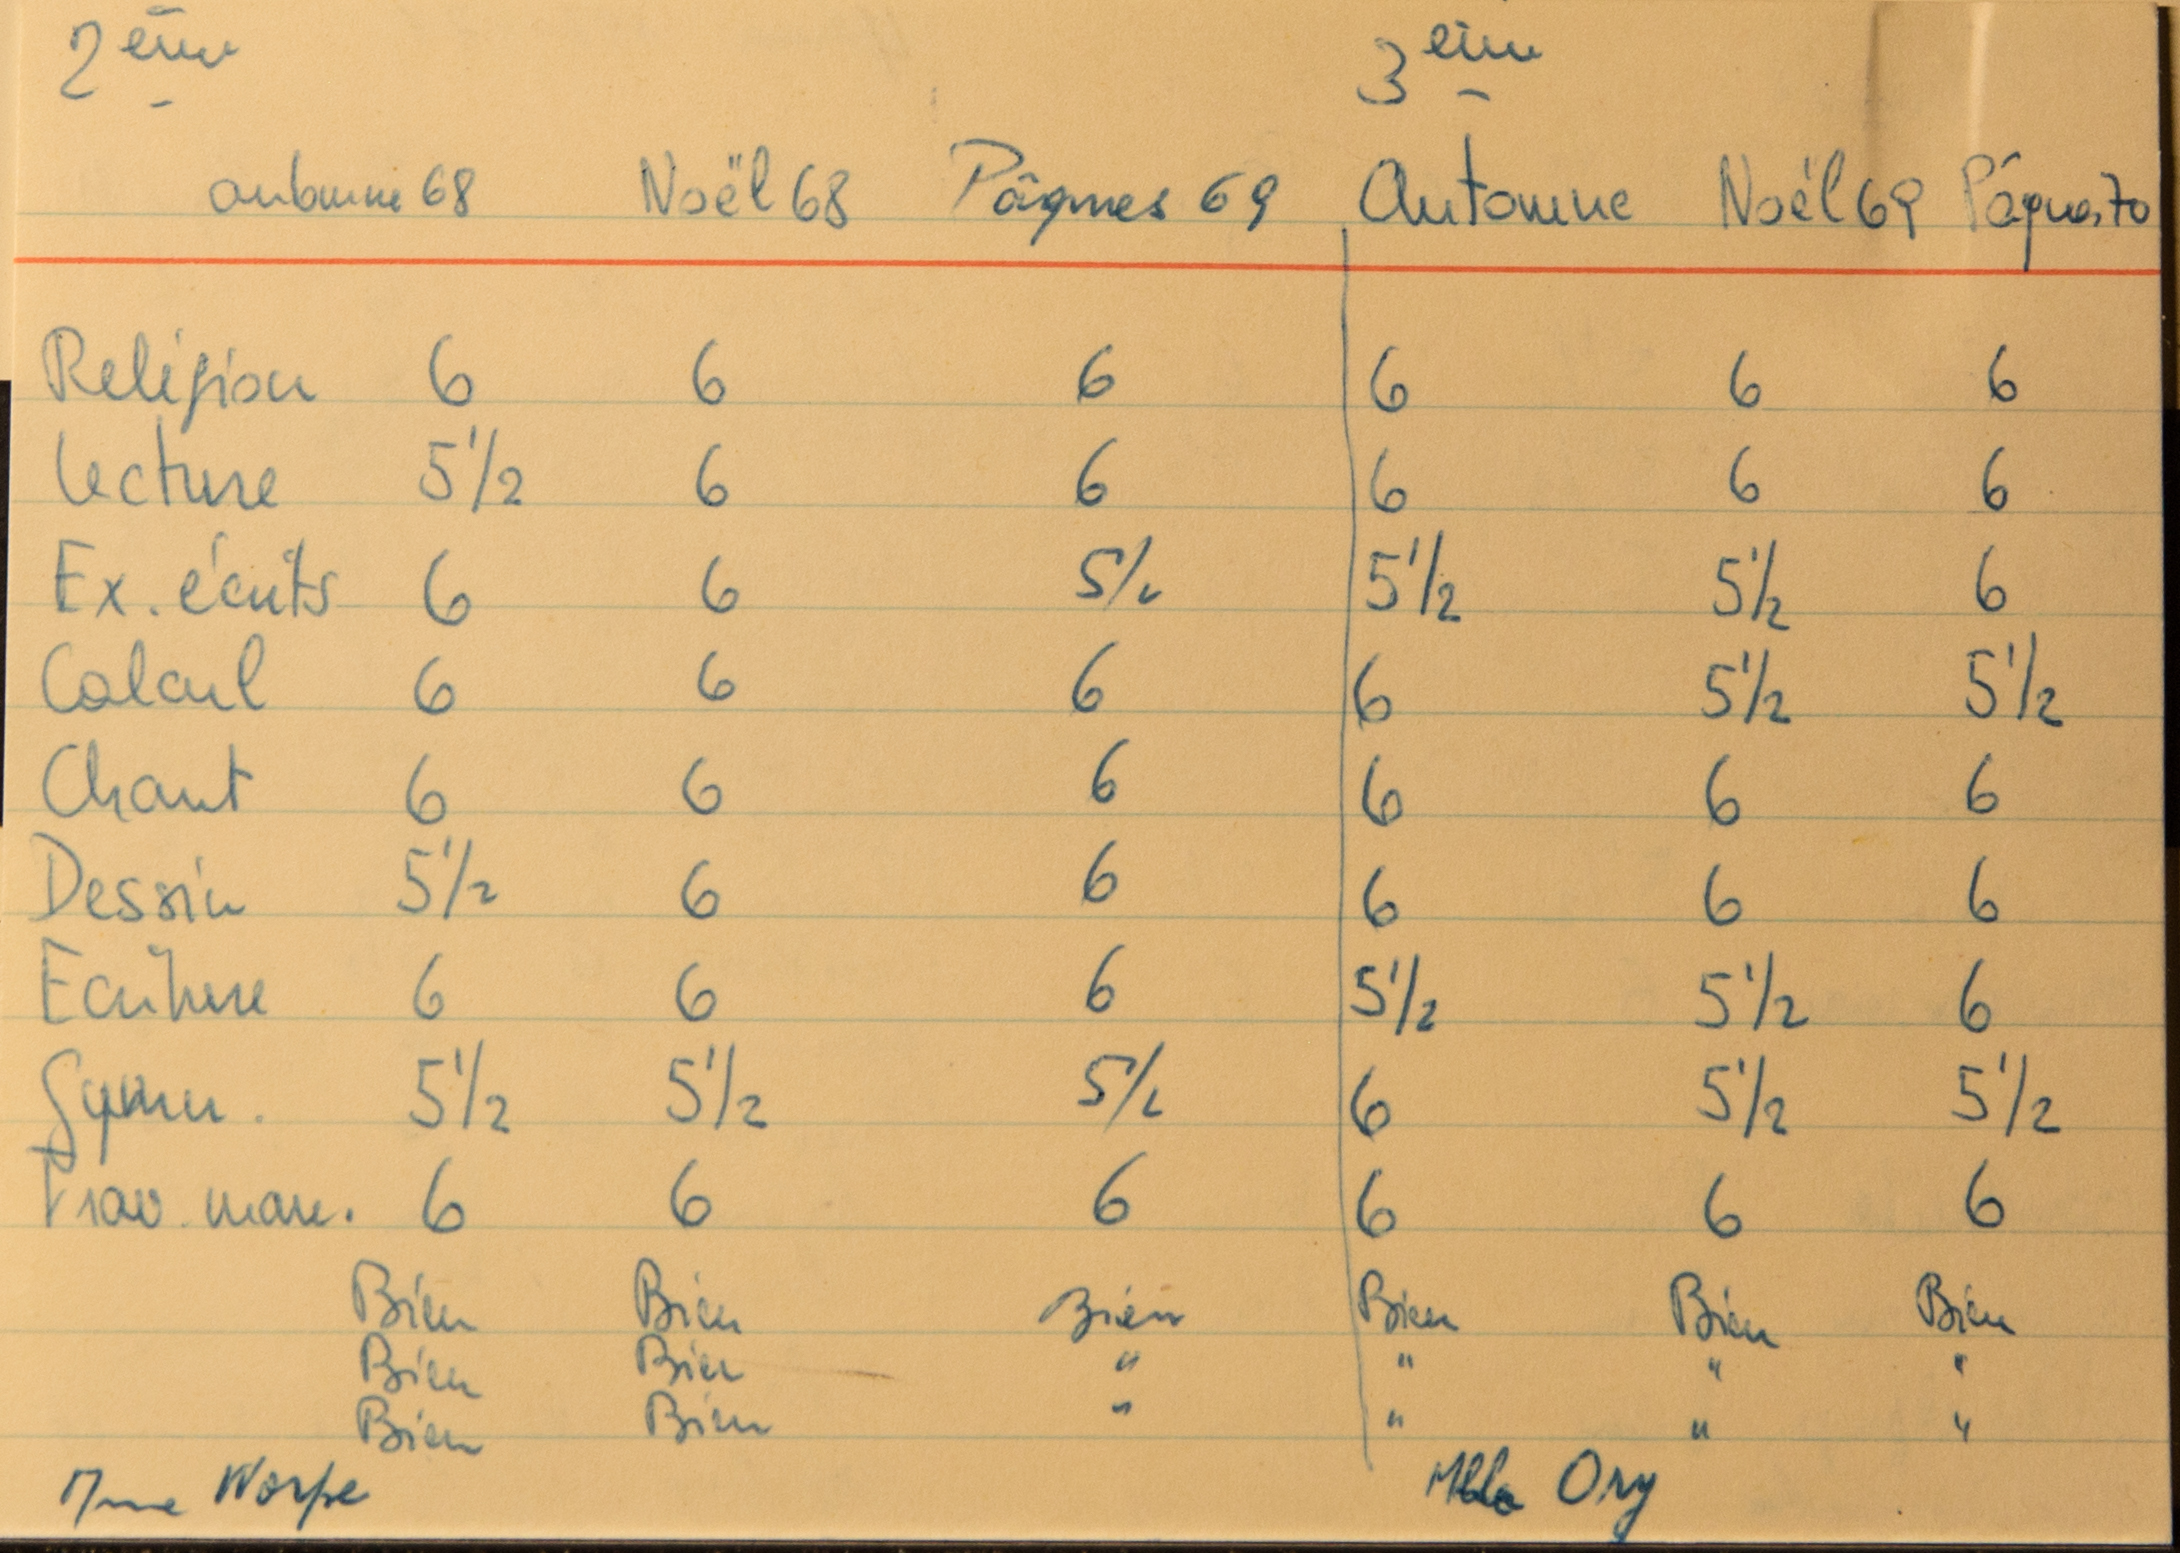 2ème 3ème
automne 68 Noël 68 Pâques 69 Automne Noël 69 Pâques 70
Religion 6 6 6 6 6 6
Lecture 5 1/2 6 6 6 6 6
Ex. écrits 6 6 5 1/2 5 1/2 5 1/2 6
Calcul 6 6 6 6 5 1/2 5 1/2
Chant 6 6 6 6 6 6
Dessin 5 1/2 6 6 6 6 6
Ecriture 6 6 6 5 1/2 5 1/2 6
Gymn. 5 1/2 5 1/2 5 1/2 6 5 1/2 5 1/2
Trav. man. 6 6 6 6 6 6
Bien Bien Bien Bien Bien Bien
Bien Bien " " " "
Bien Bien " " " "
Mme Worpe Mlle Ory